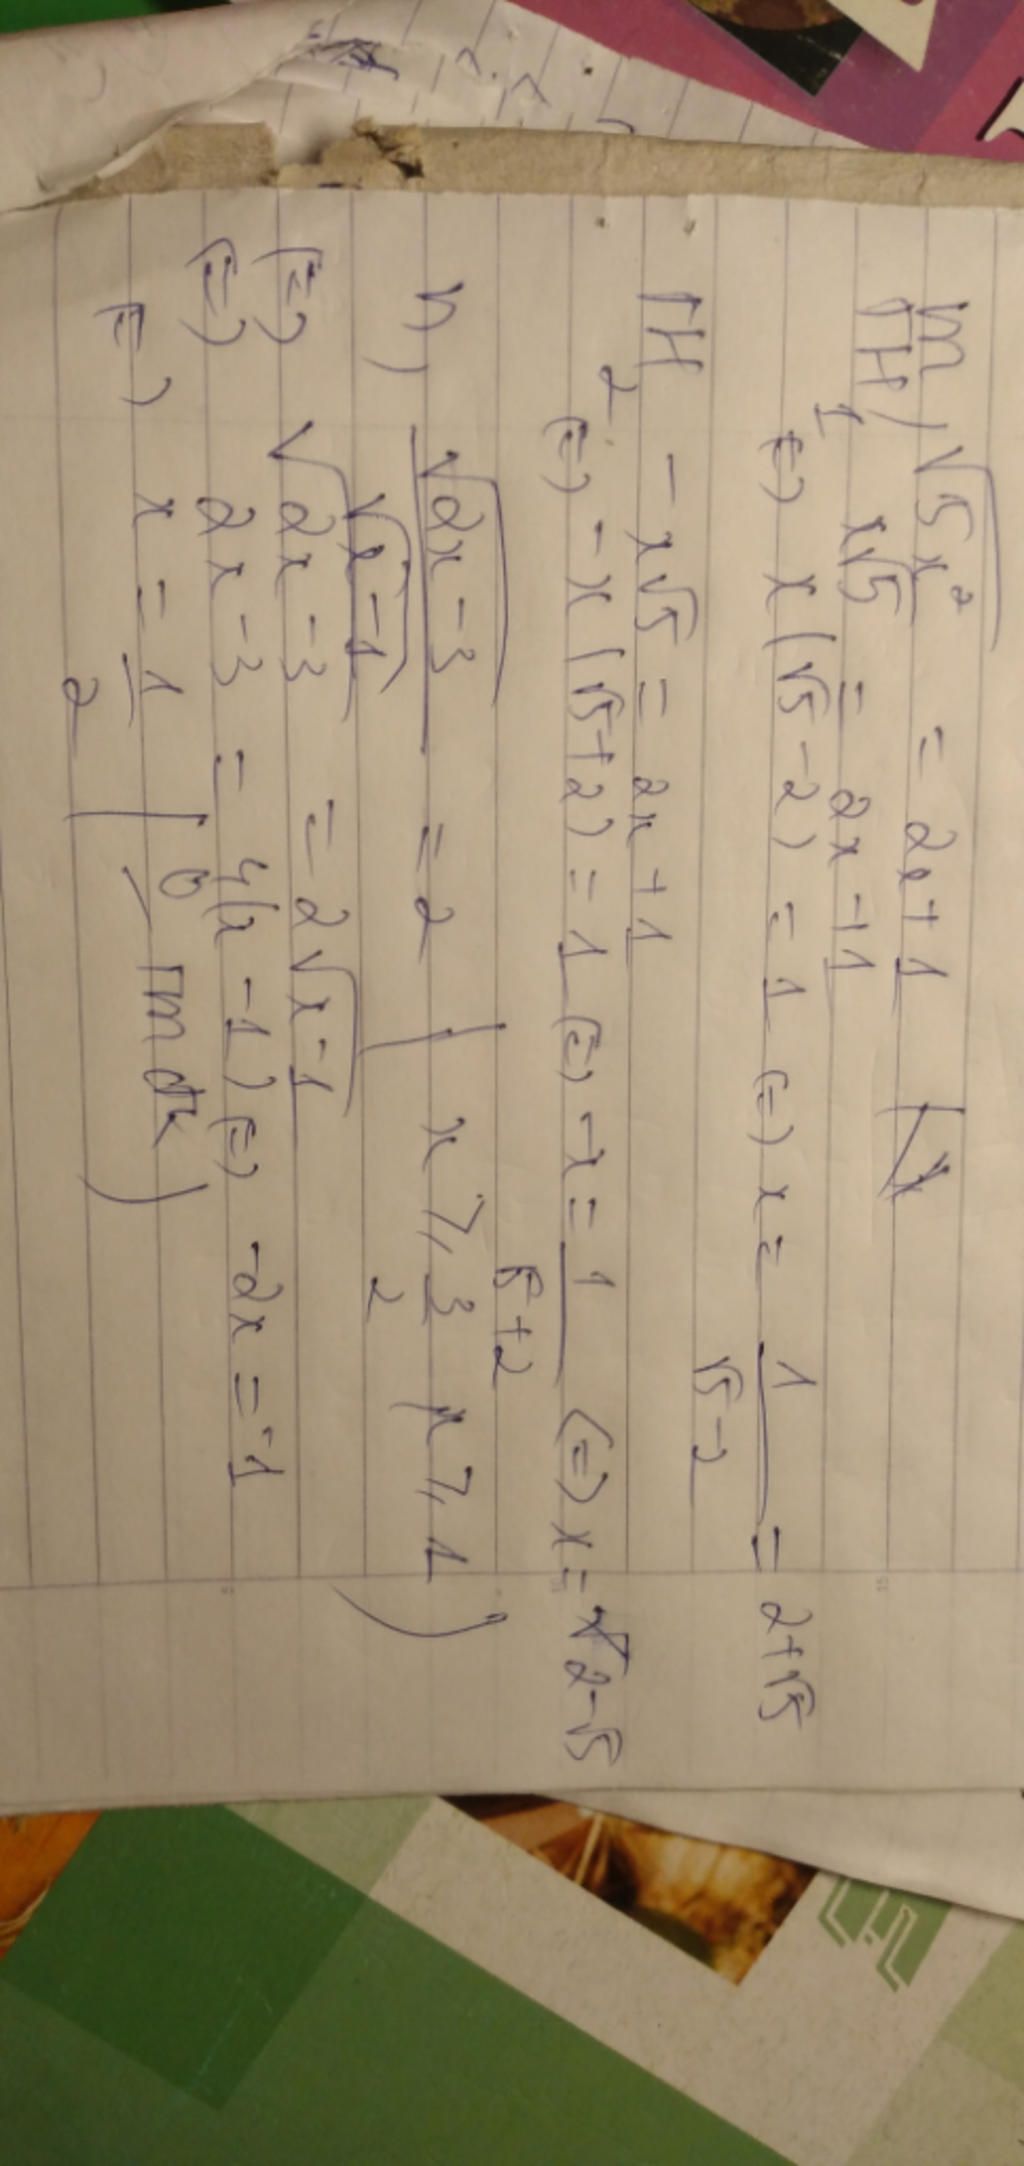 m) √5x² = 2x+1
TH1 x√5 = 2x+1
(=) x(√5-2) = 1 (=) x = 1/(√5-2) = 2+√5
TH2: -x√5 = 2x+1
(=) -x(√5+2) = 1 (=) -x = 1/(√5+2) (=) x = 2-√5
n) √(2x-3)/√(x-1) = 2 ( x ⩾ 3/2 x ⩾ 1 )
(=) √(2x-3) = 2√(x-1)
(=) 2x-3 = 4(x-1) (=) -2x = -1
(=) x = 1/2 ( 0 Tmđk )